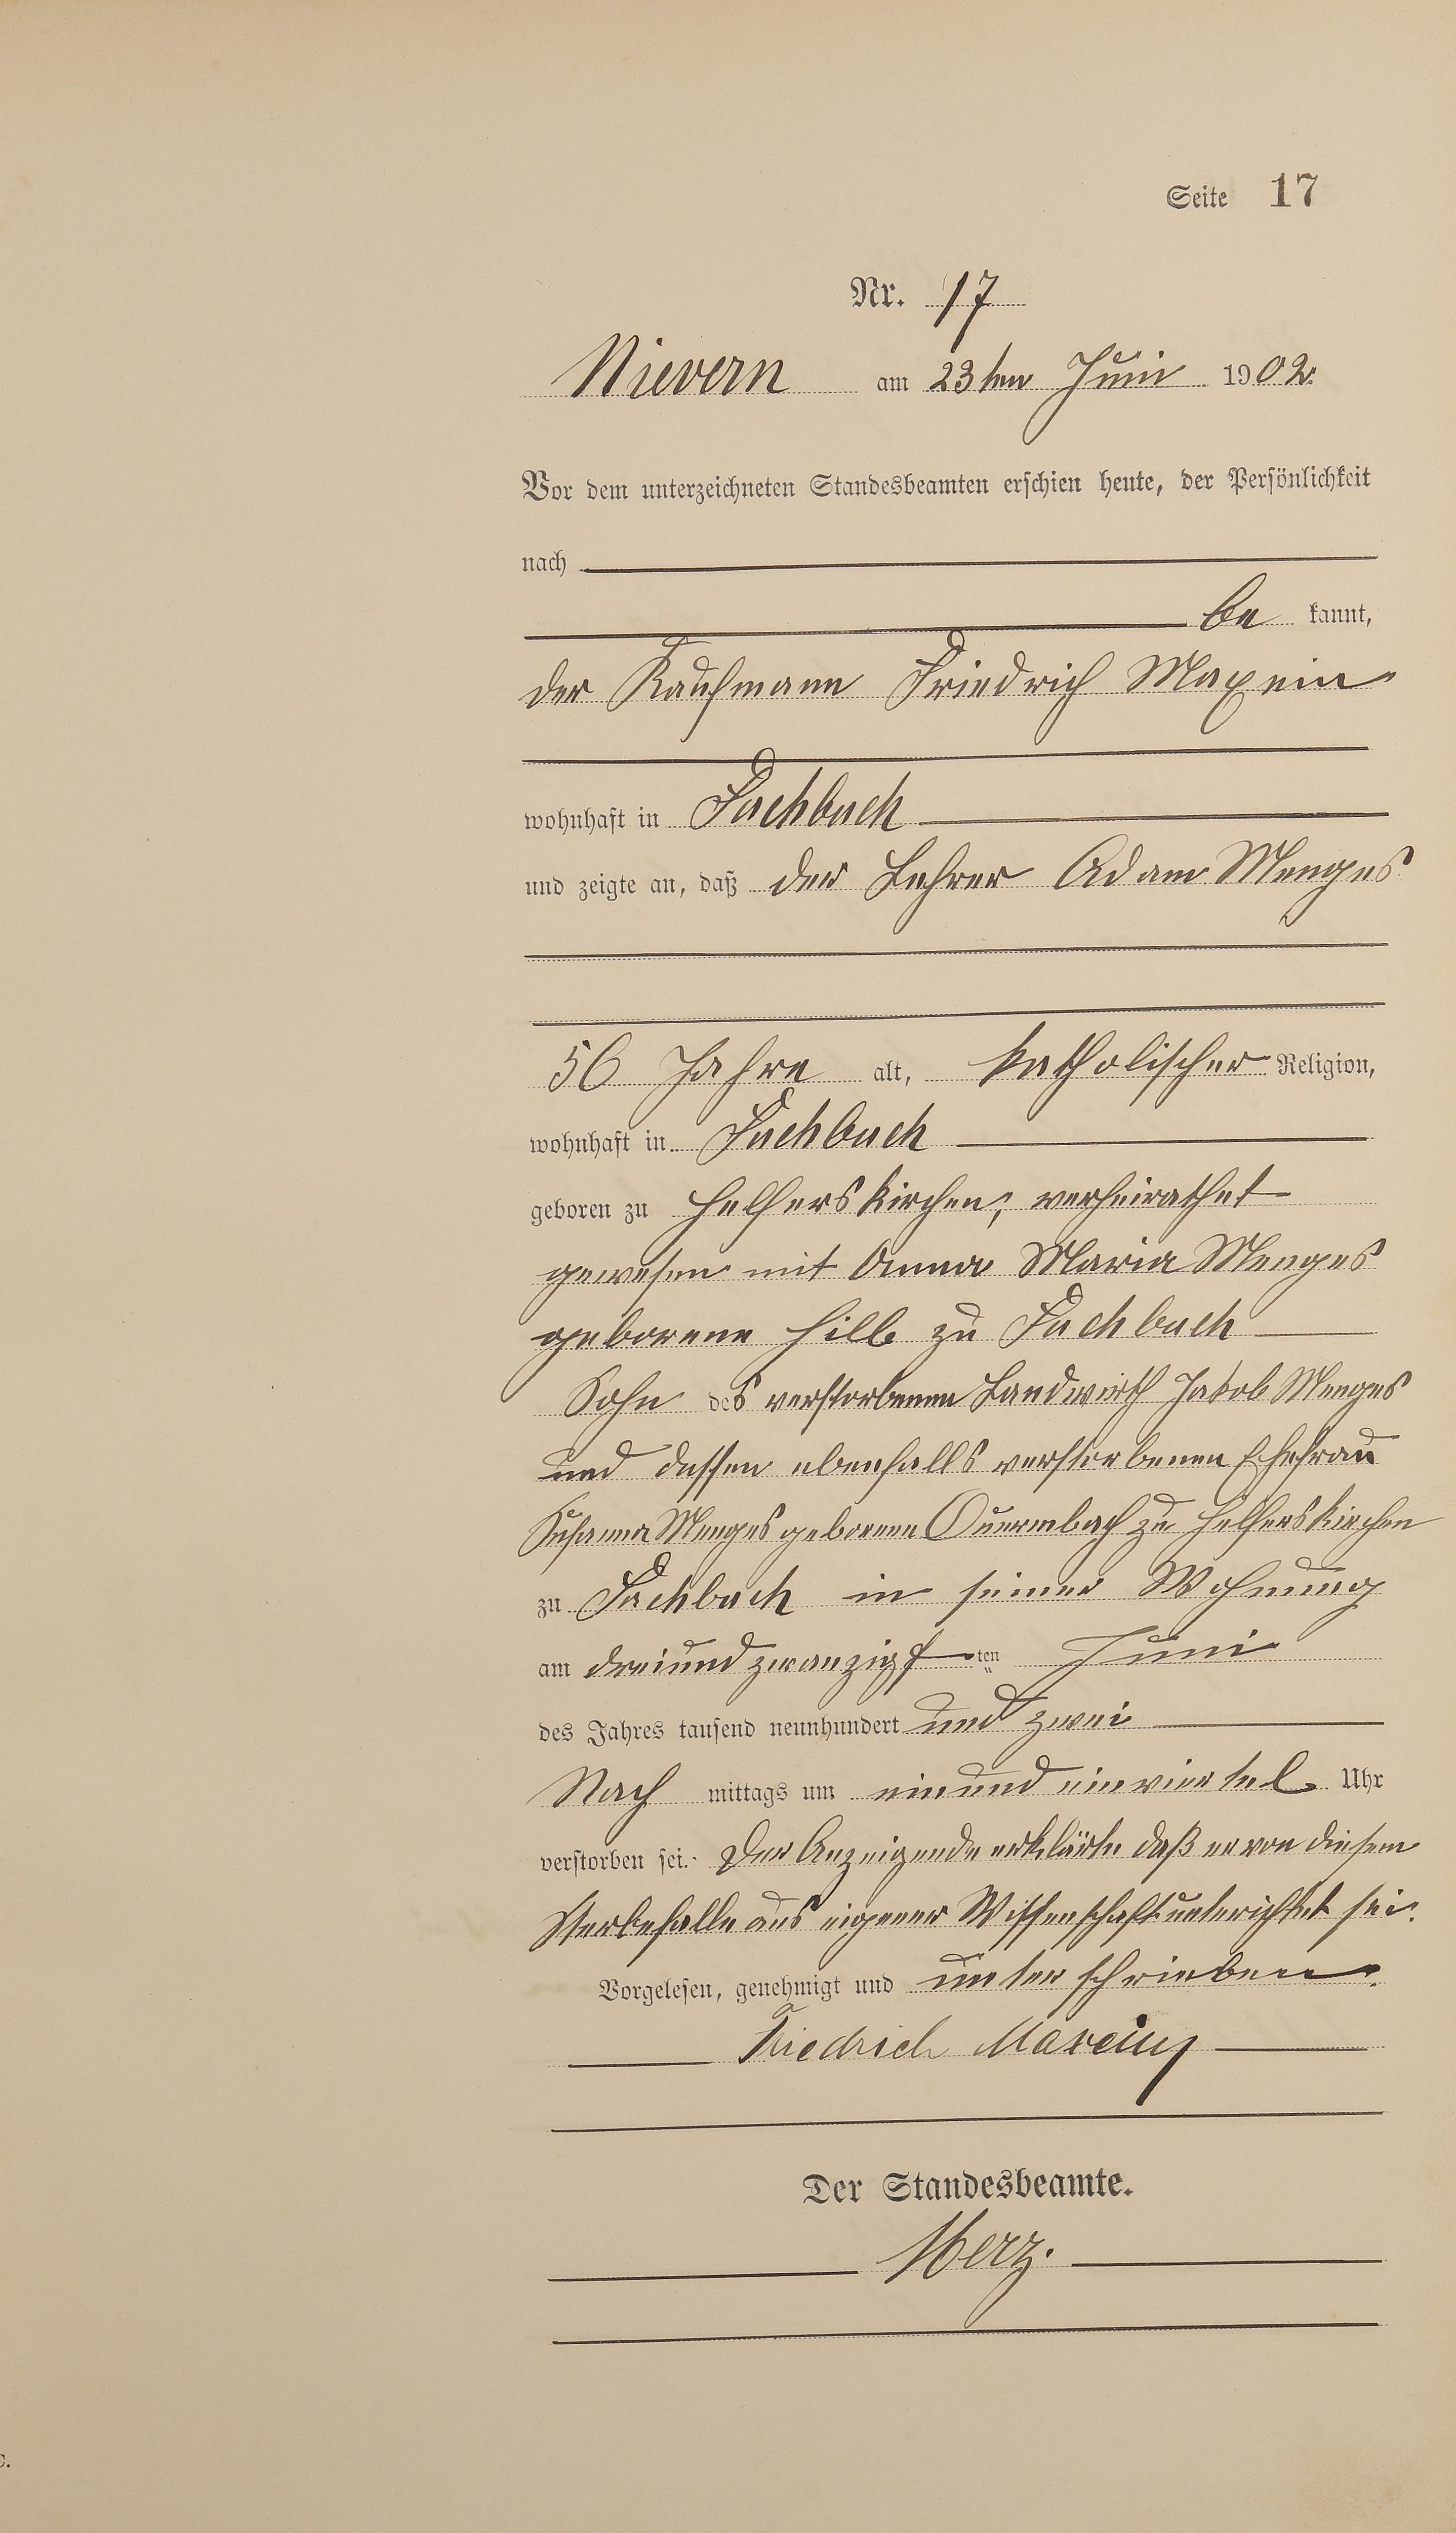 Seite 17
Nr. 17
Nievern am 23ten Juni 1902.
Vor dem unterzeichneten Standesbeamten erschien heute, der Persönlichkeit
nach
be kannt,
der Kaufmann Friedrich Maxein
wohnhaft in Fachbach
und zeigte an, daß der Lehrer Adam Menges
56 Jahre alt, katholischer Religion,
wohnhaft in Fachbach
geboren zu Helferskirchen, verheirathet
gewesen mit Anna Maria Menges
geborene Hilb zu Fachbach
Sohn des verstorbenen Landwirth Jakob Menges
und dessen ebenfalls verstorbenen Ehefrau
Susanna Menges geborene Quermbach zu Helferskirchen
zu Fachbach in seiner Wohnung
am dreiundzwanzigsten Juni
des Jahres tausend neunhundert und zwei
Nach mittags um einundeinviertel Uhr
verstorben sei. Der Anzeigende erklärte daß er von diesem
Sterbefalle aus eigener Wissenschaft unterichtet sei.
Vorgelesen, genehmigt und unterschrieben.
Friedrich Maxeiny
Der Standesbeamte.
Merz.